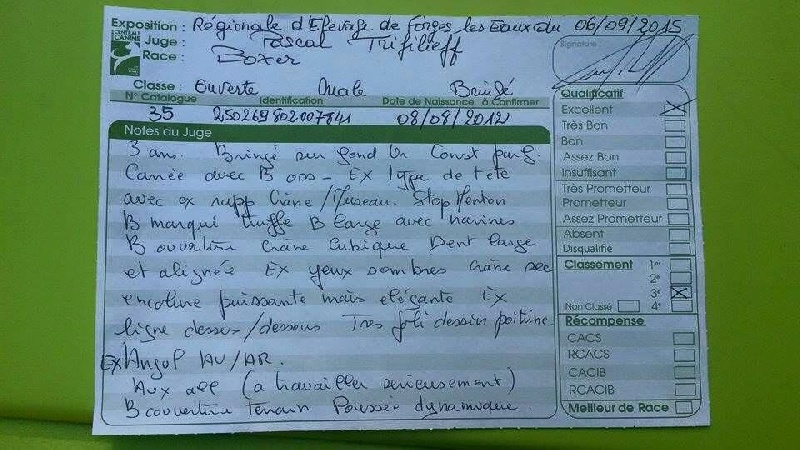 Exposition : Régionale d'Elevage de Forges les Eaux du 06/09/2015
Juge : Pascal Trifilieff
Race : Boxer
Signature
Classe : Ouverte Male Bringé
N° Catalogue Identification Date de Naissance à Confirmer
35 250269802007841 08/08/2012
Notes du Juge
3 ans. Bringé sur fond Or Const parf.
Carrée avec B oss - Ex Type de tete
avec ex rapp Crâne/Museau. Stop Menton
B marqué truffe B large avec narines
B ouverture crâne cubique Dent large
et alignée Ex yeux sombres crâne sec
encolure puissante mais elégante Ex
ligne dessus/dessous Tres joli dessin poitrine
Ex Angul AV/AR.
Aux all (a travailler serieusement)
B couverture Terrain Poussée dynamique
Qualificatif
Excellent
Très Bon
Bon
Assez Bon
Insuffisant
Très Prometteur
Prometteur
Assez Prometteur
Absent
Disqualifié
Classement 1er
2e
3e
Non Classé 4e
Récompense
CACS
RCACS
CACIB
RCACIB
Meilleur de Race